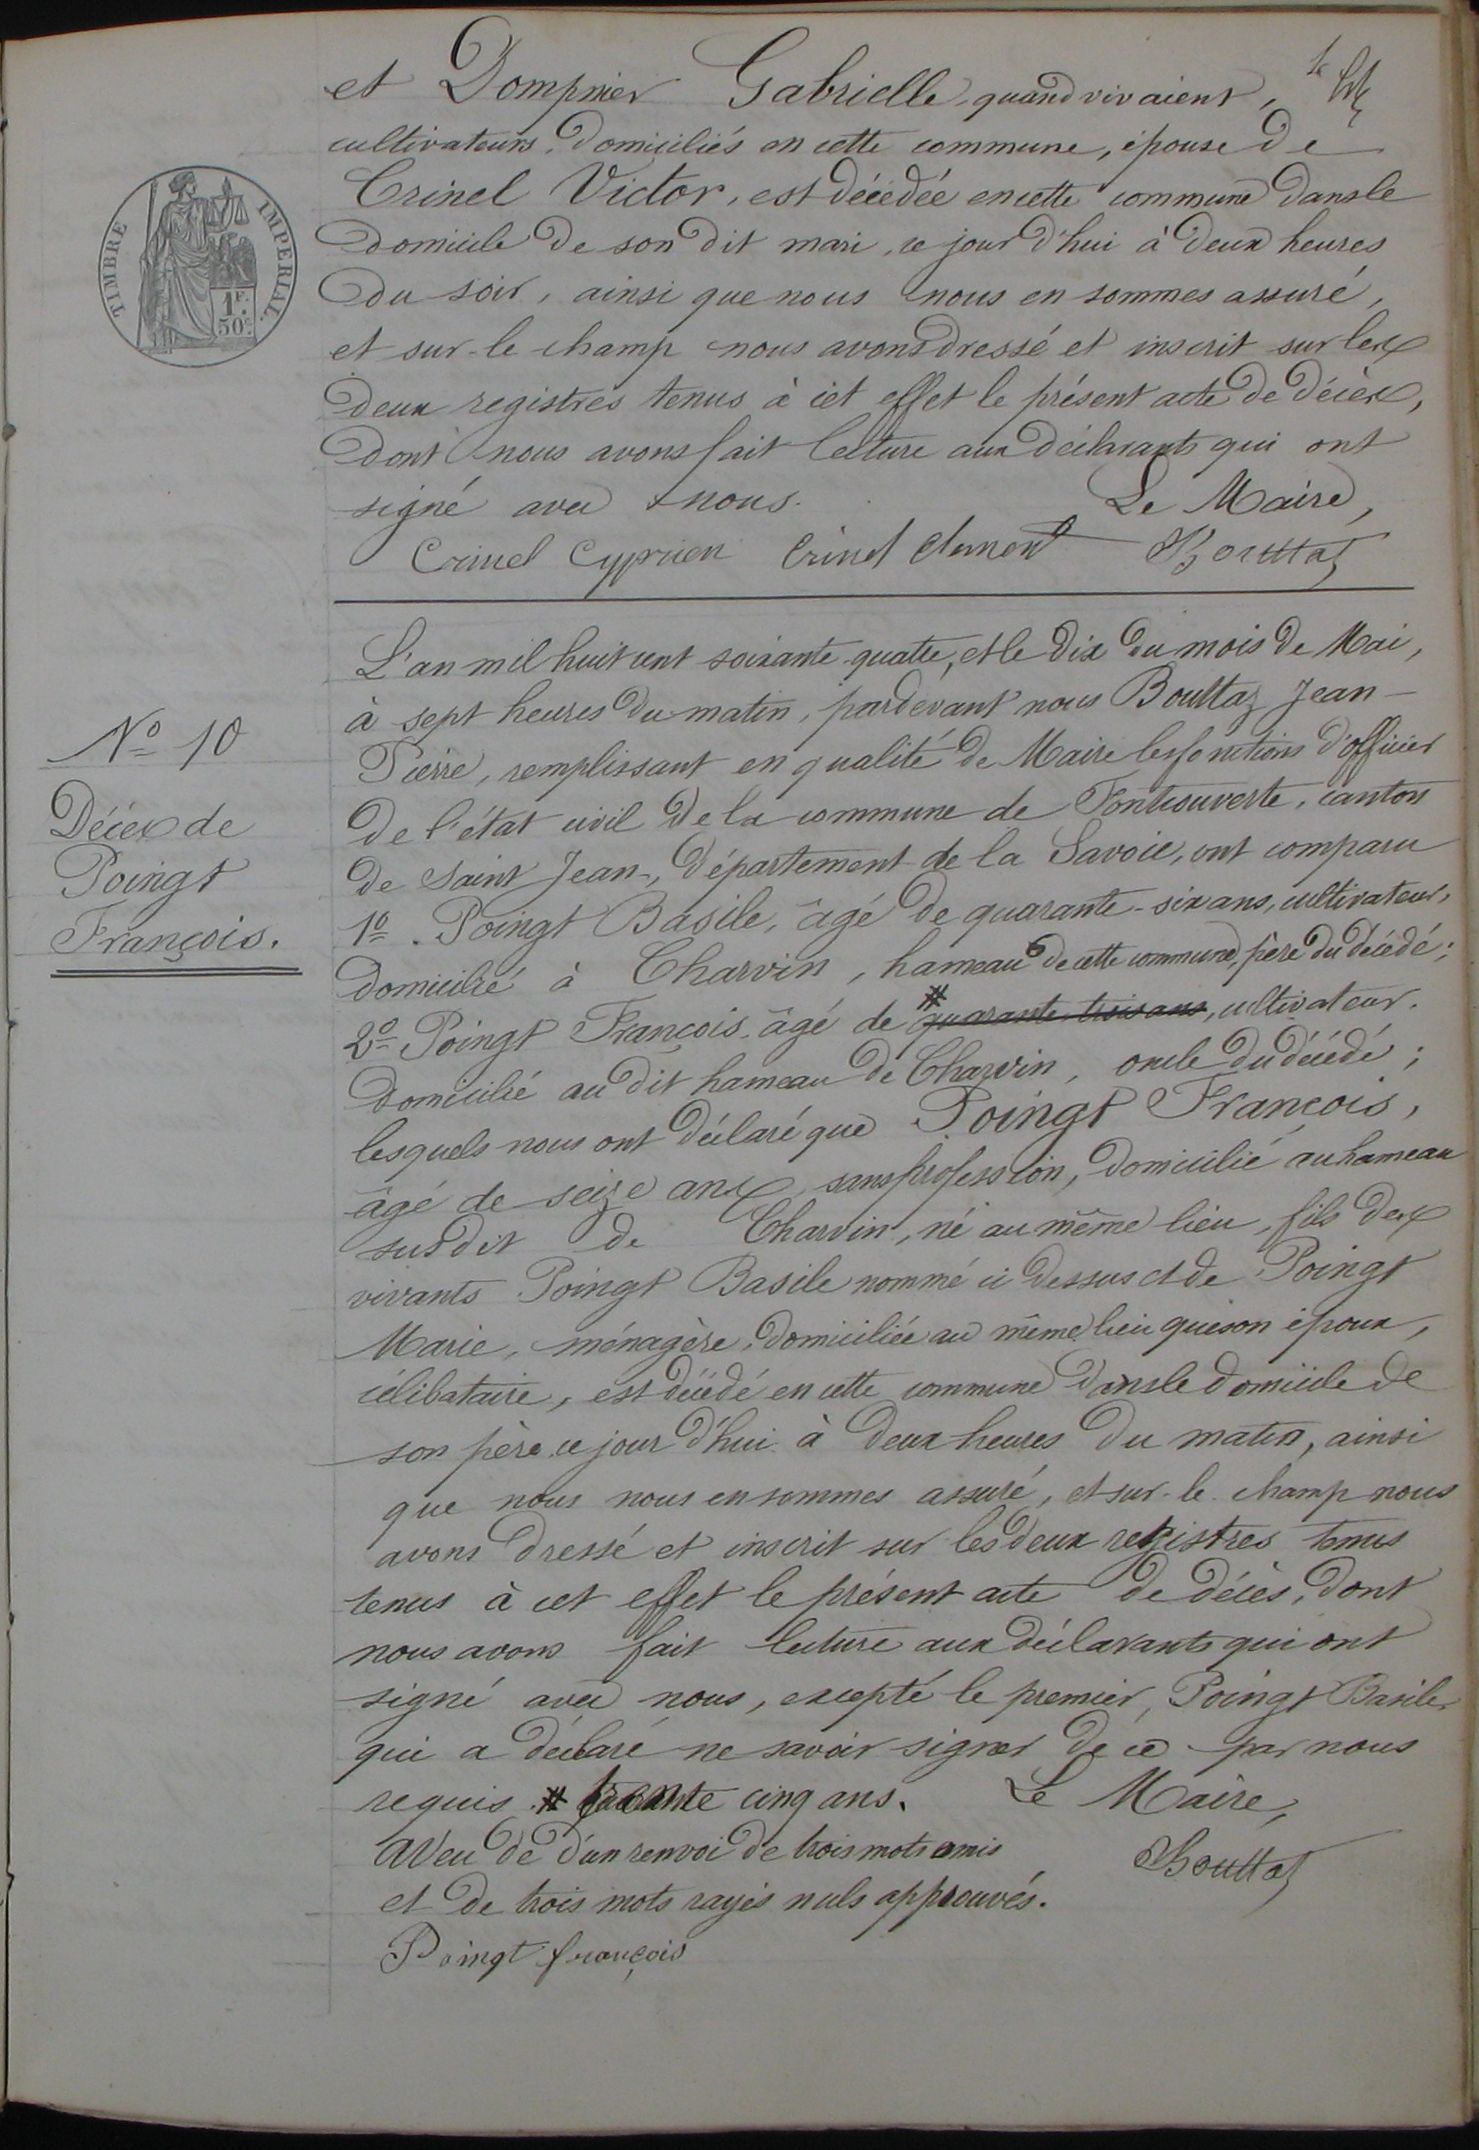 et Dompnier Gabrielle, quand vivaient,
cultivateurs, domiciliés en cette commune, épouse de
Crinel Victor, est décédée en cette commune dans le
domicile de son dit mari, ce jour d'hui à deux heures
du soir, ainsi que nous nous en sommes assuré,
et sur-le champ nous avons dressé et inscrit sur les
deux registres tenus à cet effet le présent acte de décès,
dont nous avons fait lecture aux déclarants qui ont
signé avec nous. Le Maire,
Crinel Cyprien Crinel Clement Bouttaz
TIMBRE IMPERIAL.
1F.
50c.
N° 10
Décès de
Poingt
François.
L'an mil huit cent soixante-quatre, et le dix du mois de Mai,
à sept heures du matin, pardevant nous Bouttaz Jean-
Pierre, remplissant en qualité de Maire les fonctions d'officier
de l'état civil de la commune de Fontcouverte, canton
de Saint Jean, département de la Savoie, ont comparu
1° Poingt Basile, âgé de quarante-six ans, cultivateur,
domicilié à Charvin, hameau de cette commune, père du décédé;
2° Poingt François, âgé de # quarante trois ans, cultivateur.
domicilié au dit hameau de Charvin, oncle du décédé;
lesquels nous ont déclaré que Poingt François,
âgé de seize ans, sans profession, domicilié au hameau
susdit de Charvin, né au même lieu, fils des
vivants Poingt Basile nommé ci dessus et de Poingt
Marie, ménagère, domiciliée au même lieu que son époux,
célibataire, est décédé en cette commune dans le domicile de
son père ce jour d'hui à deux heures du matin, ainsi
que nous nous en sommes assuré, et sur-le-champ nous
avons dressé et inscrit sur les deux registres tenus
tenus à cet effet le présent acte de décès, dont
nous avons fait lecture aux déclarants qui ont
signé avec nous, excepté le premier, Poingt Basile,
qui a déclaré ne savoir signer de ce par nous
requis. # trente cinq ans. Le Maire,
aveu de d'un renvoi de trois mots omis Bouttaz
et de trois mots rayés nuls approuvés.
Poingt françois